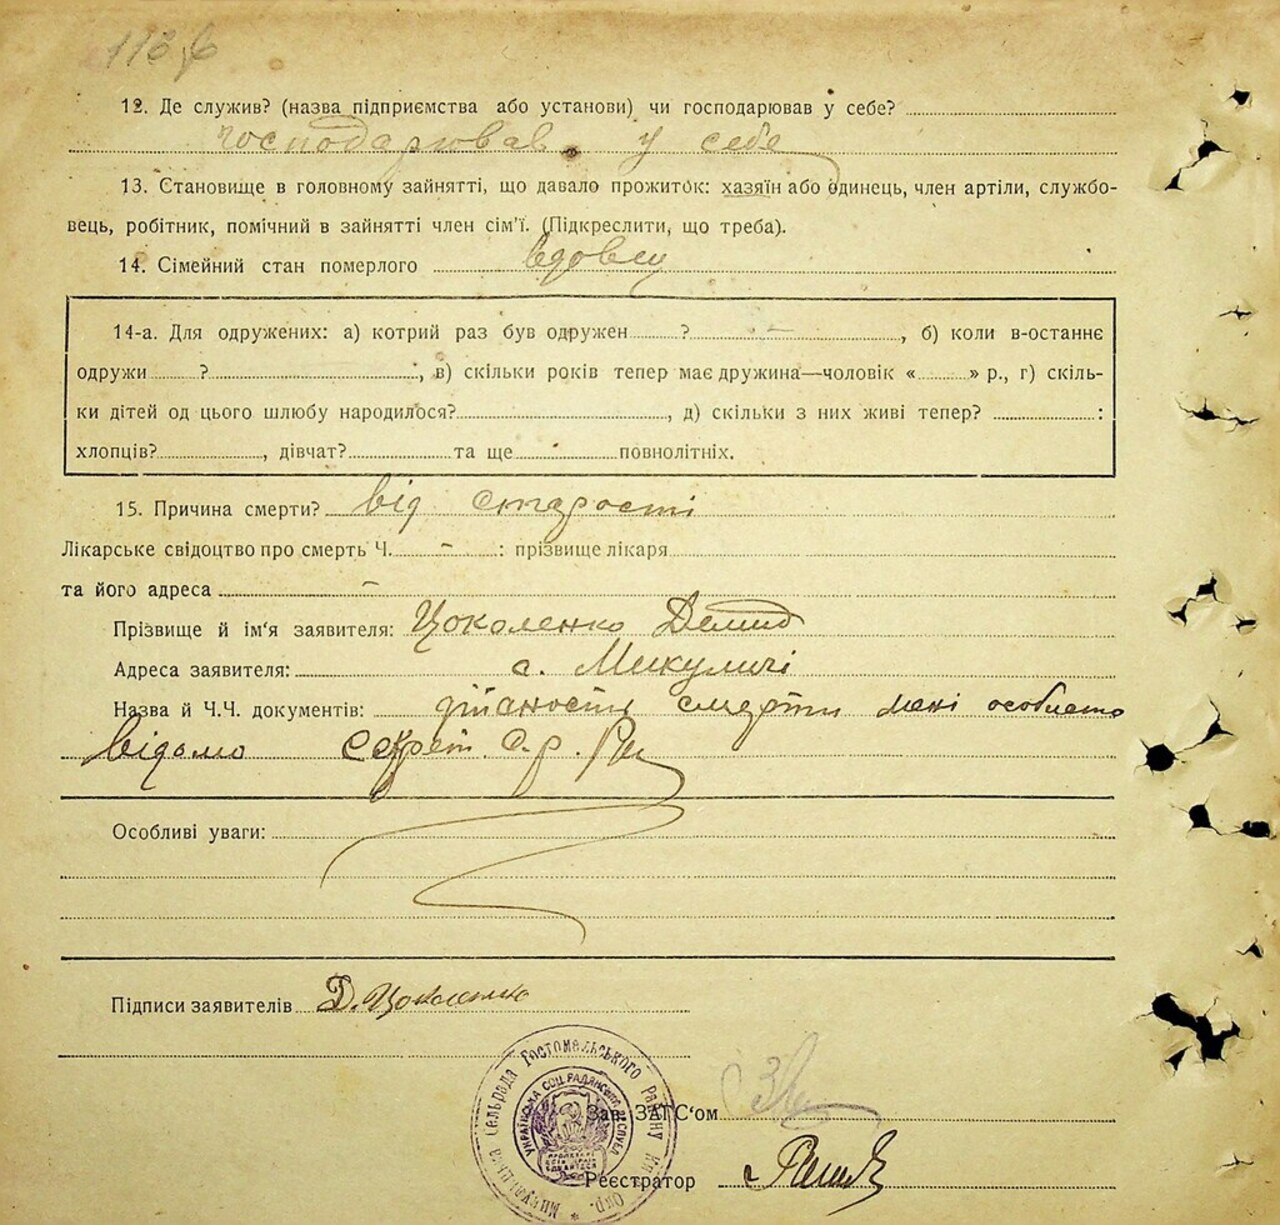 12. Де служив? (назва підприємства або установи) чи господарював у себе?
господарював у себе
13. Становище в головному зайнятті, що давало прожиток: хазяїн або одинець, член артіли, службо-
вець, робітник, помічний в зайнятті член сім'ї. (Підкреслити, що треба).
14. Сімейний стан померлого вдовец
14-а. Для одружених: а) котрий раз був одружен ? , б) коли в-останнє
одружи ? , в) скільки років тепер має дружина—чоловік « » р., г) скіль-
ки дітей од цього шлюбу народилося? , д) скільки з них живі тепер? :
хлопців? , дівчат? та ще повнолітніх.
15. Причина смерти? від старости
Лікарське свідоцтво про смерть Ч. - : прізвище лікаря
та його адреса -
Прізвище й ім'я заявителя: Цоколенко Демид
Адреса заявителя: с. Микуличі
Назва й Ч.Ч. документів: дійсность смерти мені особисто
відомо секрет. с.р.
Особливі уваги:
Підписи заявителів Д. Цоколенко
Микулицька Сельрада Гостомельського Району Ки Окр.
УКРАЇНСЬКА СОЦ РАДЯНСЬКА РЕСПУБ
Зав. ЗАГС'ом
Реєстратор